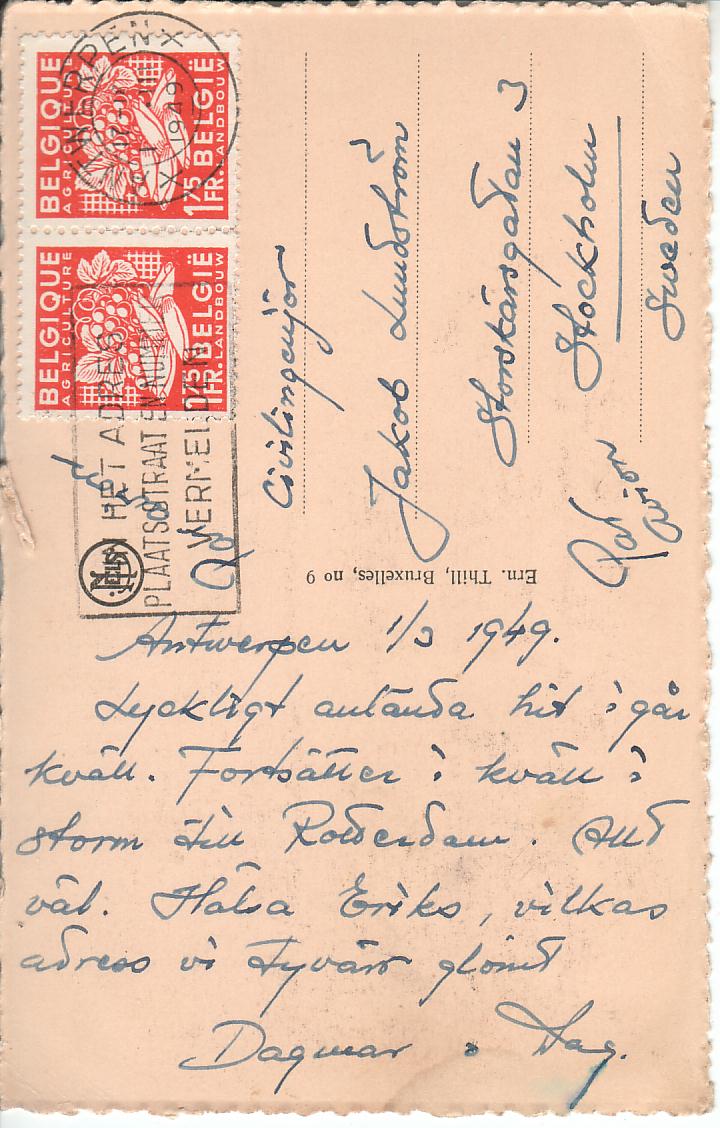 BELGIQUE
AGRICULTURE
1.75
FR.
BELGIË
LANDBOUW
BELGIQUE
AGRICULTURE
1.75
1FR.
BELGIË
LANDBOUW
ANTWERPEN X
1949
HET ADRES
PLAATS STRAAT EN NUMMER
VERMELDEN
NELS
Civilingenjör
Jakob Lundström
Storskärsgatan 3
Stockholm
Sweden
Par
avion
Par avion
Ern. Thill, Bruxelles, no 9
Antwerpen 1/3 1949.
Lyckligt anlända hit i går
kväll. Fortsätter i kväll i
storm till Rotterdam. Allt
väl. Hälsa Eriks, vilkas
adress vi tyvärr glömt
Dagmar o Dag.